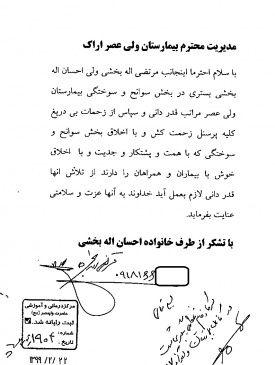 مدیریت محترم بیمارستان ولی عصر اراک
با سلام احترما اینجانب مرتضی اله بخشی ولی احسان اله
بخشی بستری در بخش سوانح و سوختگی بیمارستان
ولی عصر مراتب قدر دانی و سپاس از زحمات بی دریغ
کلیه پرسنل زحمت کش و با اخلاق بخش سوانح و
سوختگی که با همت و پشتکار و جدیت و با اخلاق
خوش با بیماران و همراهان را دارند از تلاش انها
قدر دانی لازم بعمل آید خداوند به آنها عزت و سلامتی
عنایت بفرماید.
با تشکر از طرف خانواده احسان اله بخشی
مرکز درمانی و آموزشی
حضرت ولیعصر (عج)
ثبت رایانه شد.
شماره: ۱۹۰۴
تاریخ:
۱۳۹۹/۲/۲۲